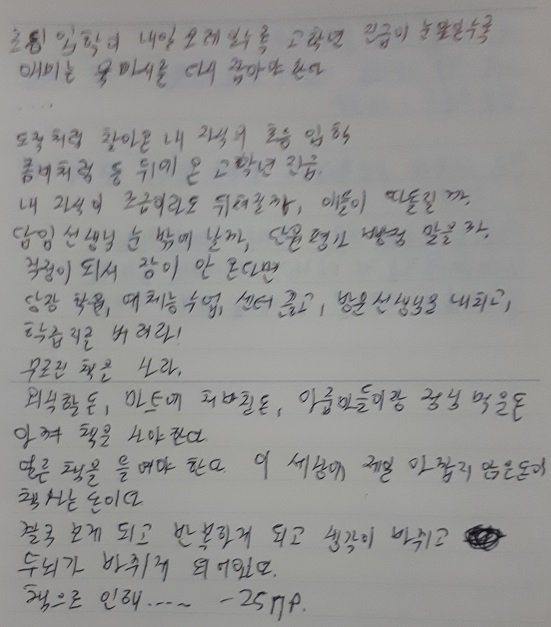 초등 입학이 내일 모레일수록 고학년 진급이 눈앞일수록
애미는 목마서를 다시 잡아야 한다
....
도적처럼 찾아온 내 자식의 초등 입학
좀비처럼 등 뒤에 온 고학년 진급.
내 자식이 조금이라도 뒤쳐질까, 애들이 따돌릴까.
담임선생님 눈 밖에 날까, 단원평가 빵점 맞을까.
걱정이 되서 잠이 안 온다면
당장 학원, 예체능수업, 센터 끊고, 방문선생님을 내치고,
학습지를 버려라!
무조건 책을 사라.
외식할돈, 마트에 퍼바칠돈, 이웃아들이랑 점심 먹을돈
아껴 책을 사야한다
얼른 책을 들여야 한다. 이 세상에 제일 아깝지 않은돈이
책사는 돈이다
결국 보게 되고 반복하게 되고 생각이 바뀌고
두뇌가 바뀌게 되어있다.
책으로 인해..... -25np.